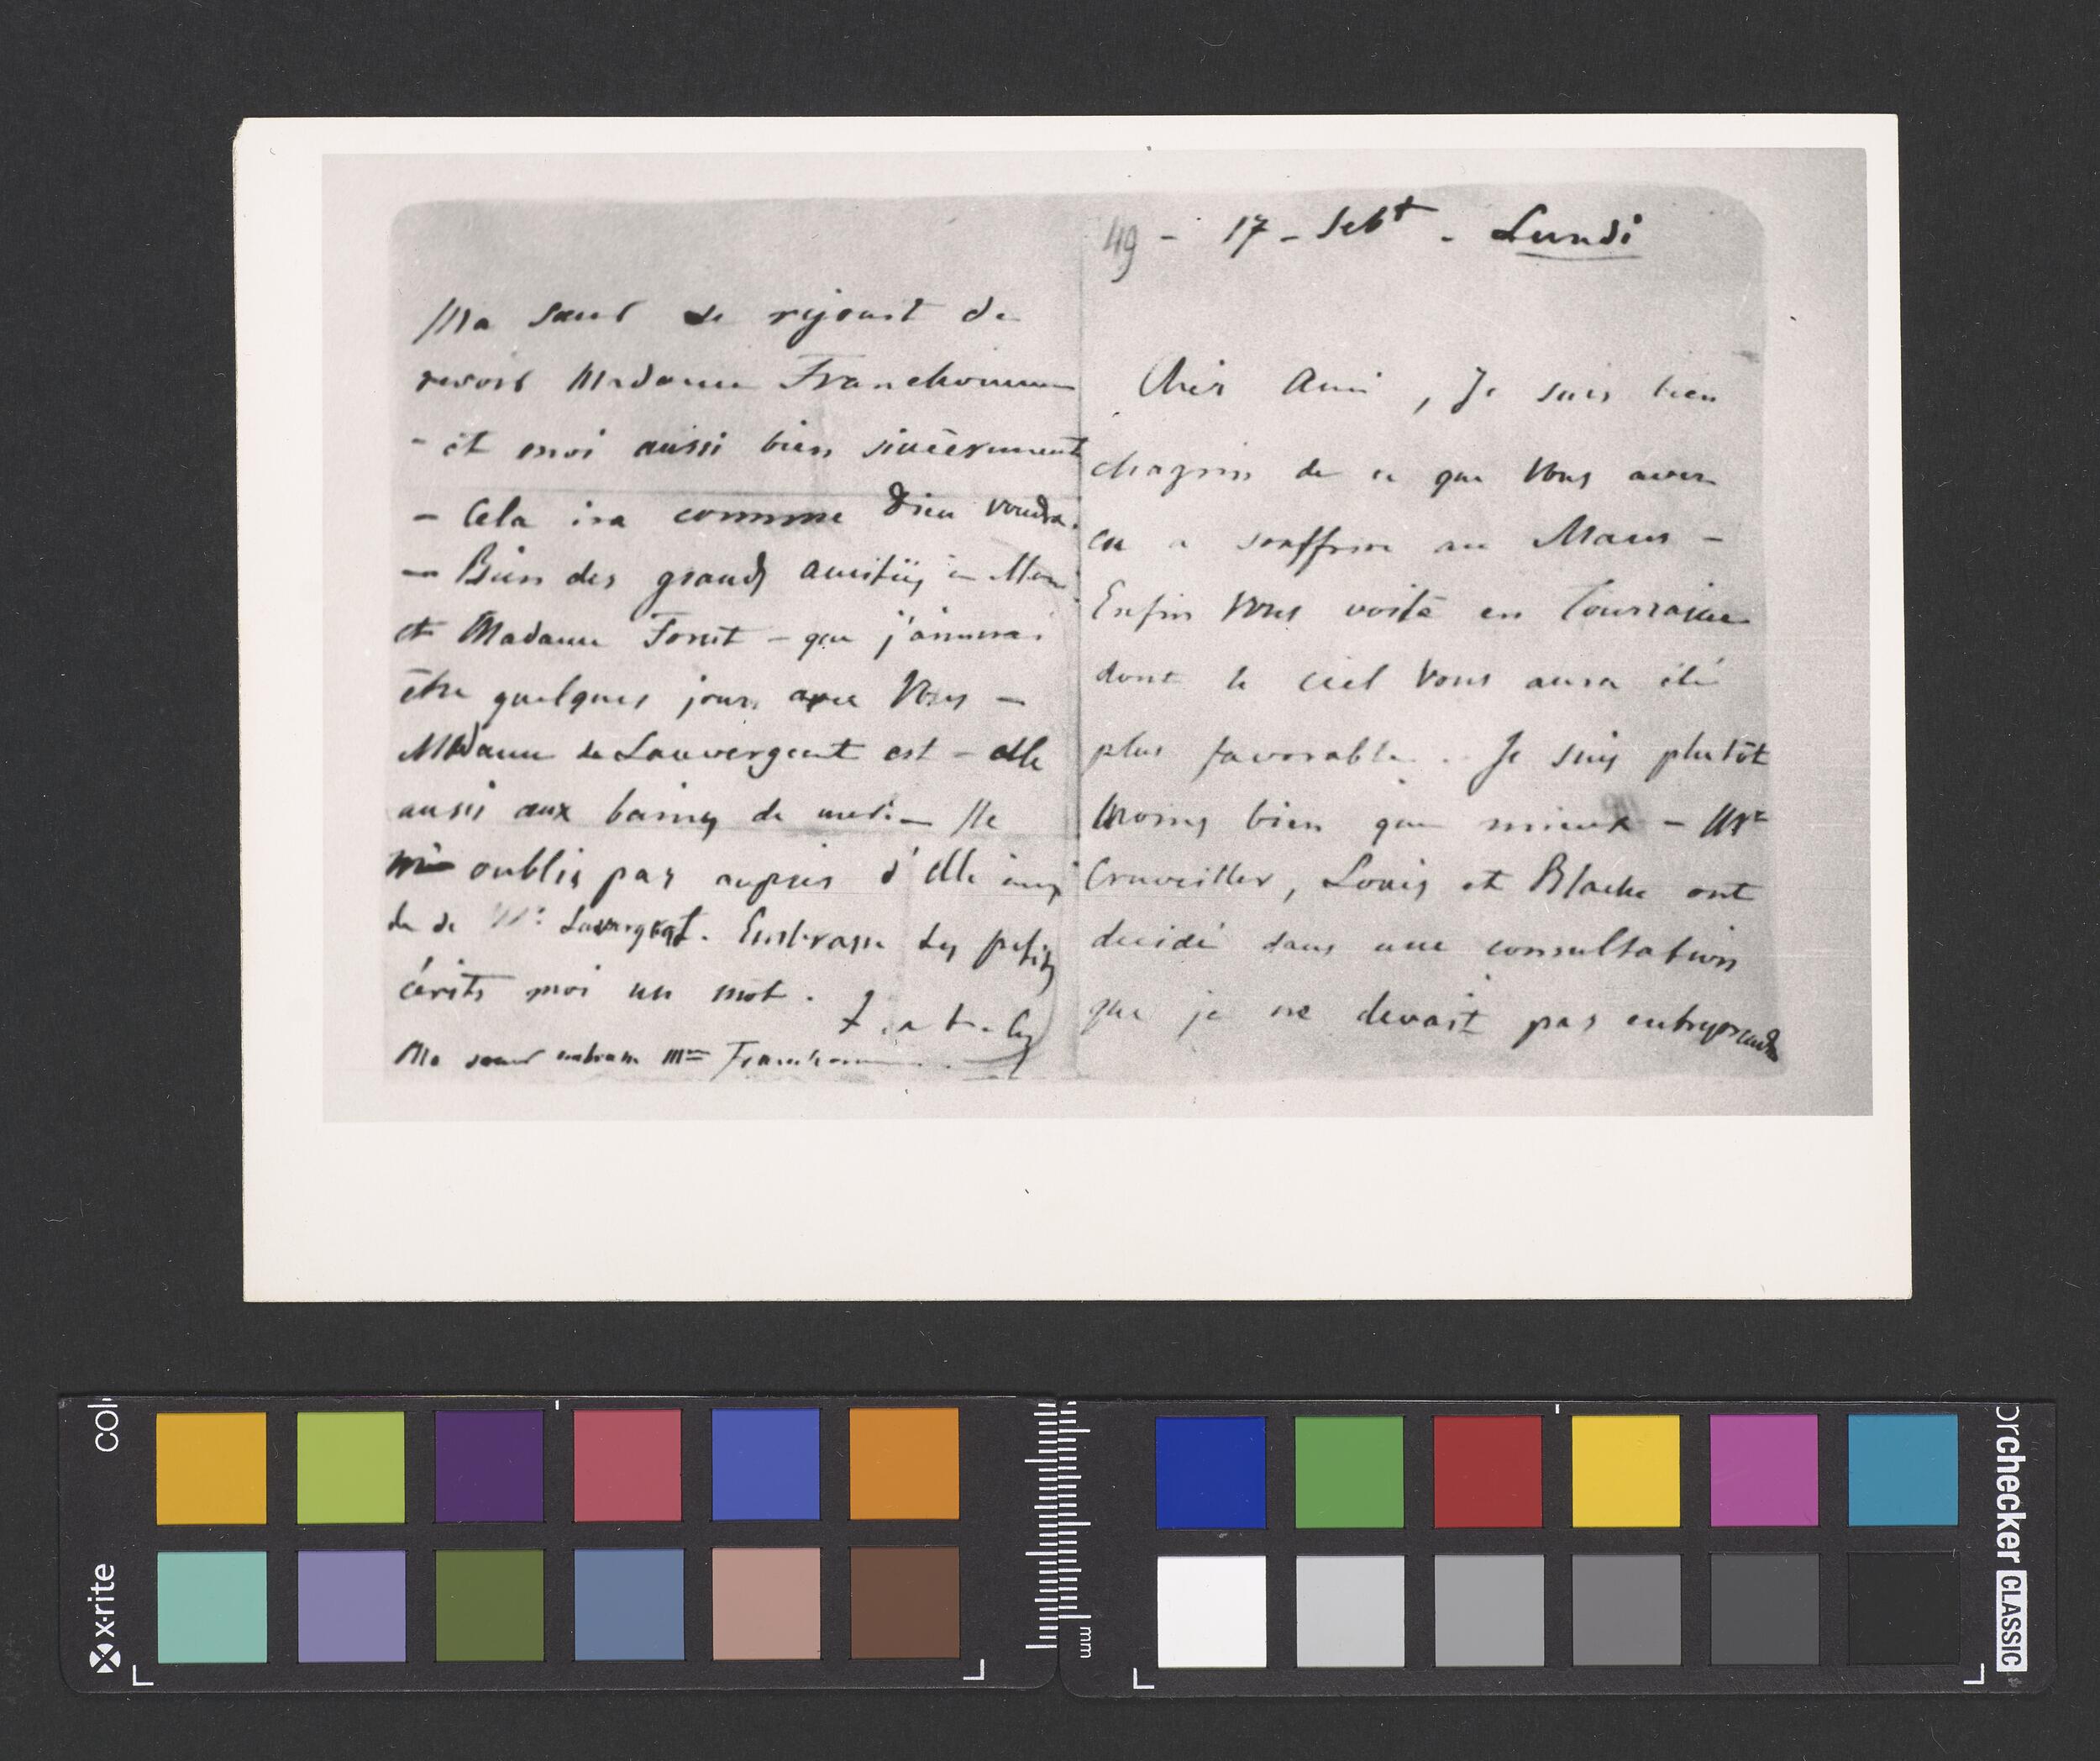 49 - 17 - Sebt. - Lundi
Cher Ami, Je suis bien
chagrin de ce que Vous avez
eu a souffrire au Mans -
Enfin Vous voilà en Tourraine
dont le ciel Vous aura été
plus favorable. Je suis plutôt
moins bien que mieux - Mrs
Cruveiller, Louis et Blache ont
decidé dans une consultation
que je ne devait pas entreprendre
Ma sœur se rejouit de
revoir Madame Franchomme
- et moi aussi bien sincèrement
- Cela ira comme Dieu voudra.
- Bien des grands amitiés à Mon
et Madame Forest - que j'aimerai
être quelques jours avec Vous -
Madame de Lauvergeat est-elle
aussi aux bains de mer. - Ne
m'oublis pas auprès d'elle ainsi
de Mr Lauvergeat. Embrasse les petits
écrits moi un mot.
Ma sœur embrasse Mme Franchomme
xrite
col
mm
orchecker CLASSIC